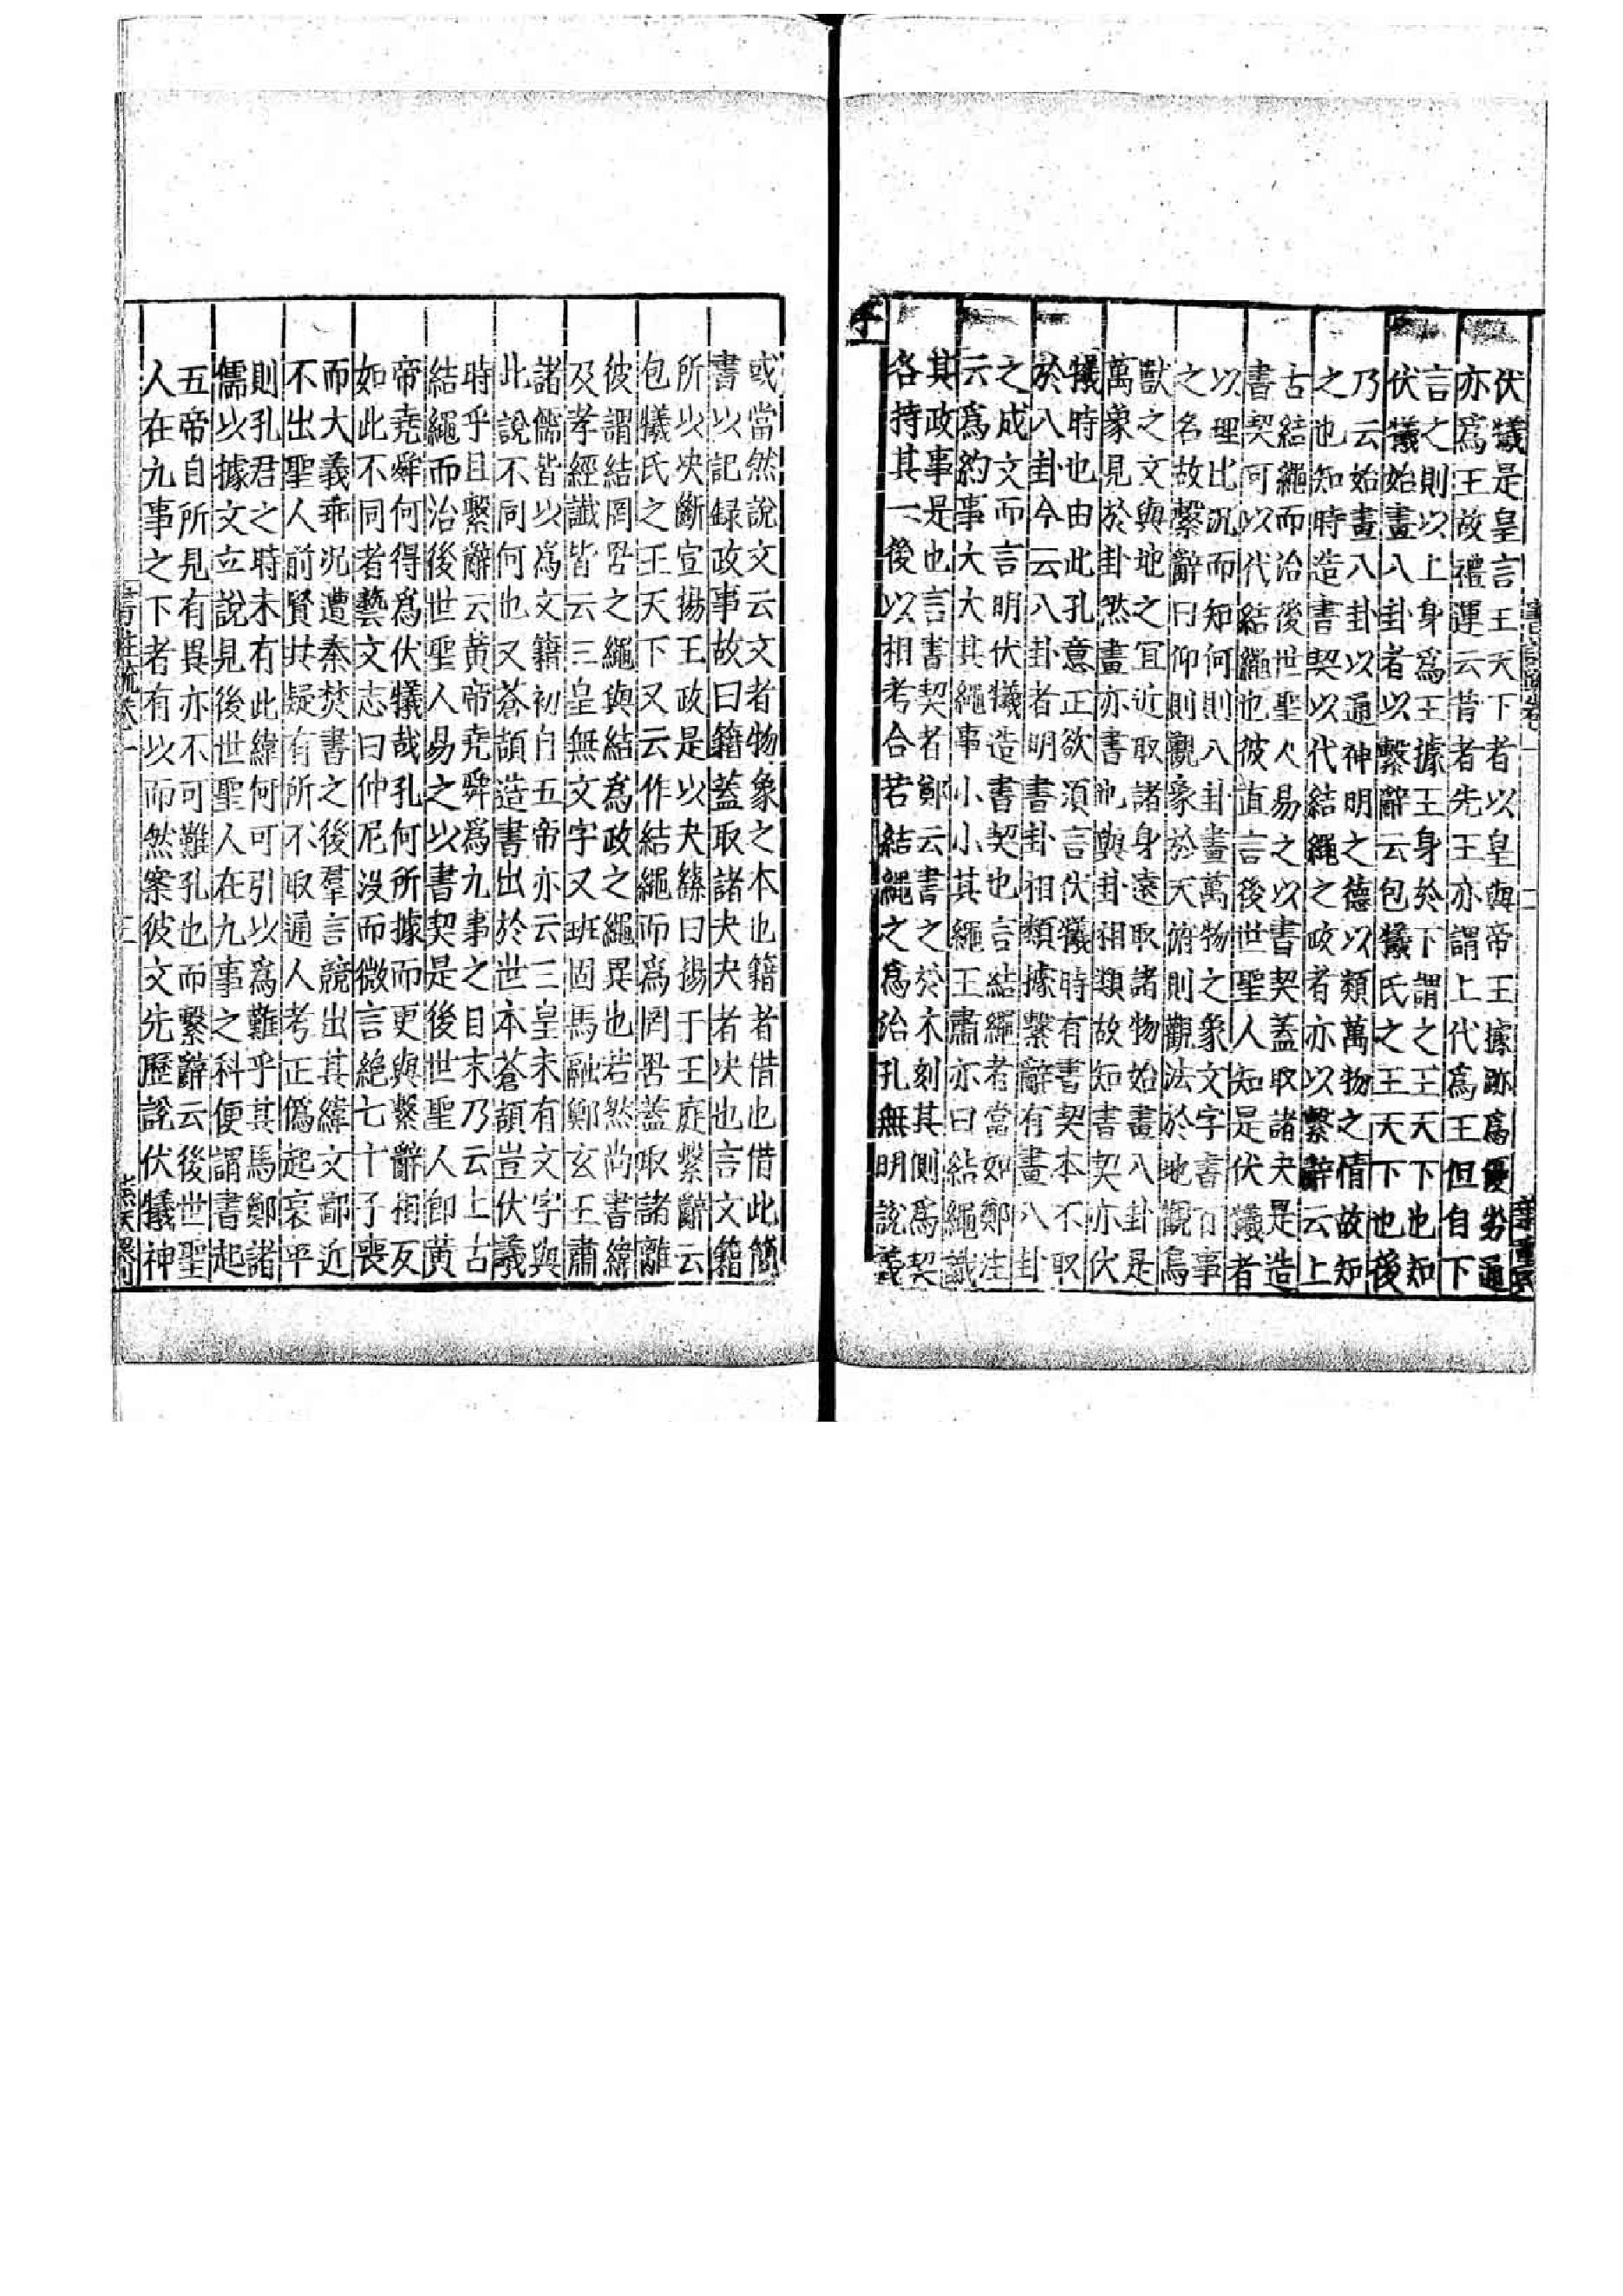 伏犠是皇言王天下者以皇與帝王據跡爲優劣通
亦爲王故禮運云昔者先王亦謂上代爲王但自下
言之則以上身爲王據王身於下謂之王天下也知
伏犠始畫八卦者以繫辭云包犠氏之王天下也後
乃云始畫八卦以通神明之德以類萬物之情故知
之也知時造書契以代結繩之政者亦以繫辭云上
古結繩而治後世聖人易之以書契蓋取諸夬是造
書契可以代結繩也彼直言後世聖人知是伏犠者
以理比況而知何則八卦畫萬物之象文字書百事
之名故繫辭曰仰則觀象於天俯則觀法於地觀鳥
獸之文與地之宜近取諸身遠取諸物始畫八卦是
萬象見於卦然畫亦書也與卦相類故知書契亦伏
犠時也由此孔意正欲須言伏犠時有書契本不取
於八卦今云八卦者明書卦相類據繫辭有畫八卦
之成文而言明伏犠造書契也言結繩者當如鄭注
云爲約事大大其繩事小小其繩王肅亦曰結繩識
其政事是也言書契者鄭云書之於木刻其側爲契
各持其一後以相考合若結繩之爲治孔無明說義
或當然說文云文者物象之本也籍者借也借此簡
書以記録政事故曰籍蓋取諸夬夬者決也言文籍
所以決斷宣揚王政是以夬繇曰揚于王庭繫辭云
包犠氏之王天下又云作結繩而爲罔罟蓋取諸離
彼謂結罔罟之繩與結爲政之繩異也若然尚書緯
及孝經讖皆云三皇無文字又班固馬融鄭玄王肅
諸儒皆以爲文籍初自五帝亦云三皇未有文字與
此說不同何也又蒼頡造書出於世本蒼頡豈伏犠
時乎且繫辭云黄帝堯舜爲九事之目末乃云上古
結繩而治後世聖人易之以書契是後世聖人即黄
帝堯舜何得爲伏犠哉孔何所據而更與繫辭相反
如此不同者藝文志曰仲尼没而微言絕七十子喪
而大義乖況遭秦焚書之後羣言競出其緯文鄙近
不出聖人前賢共疑有所不取通人考正僞起哀平
則孔君之時未有此緯何可引以爲難乎其馬鄭諸
儒以據文立說見後世聖人在九事之科便謂書起
五帝自所見有異亦不可難孔也而繫辭云後世聖
人在九事之下者有以而然案彼文先歷說伏犠神